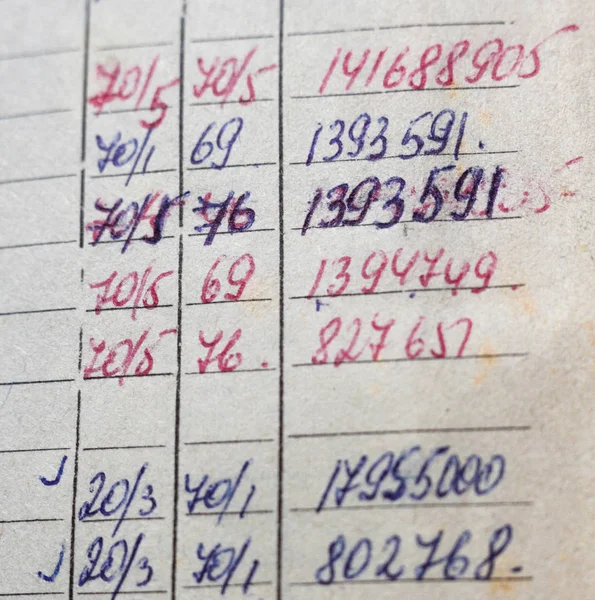 70/5 70/5 141688905
70/1 69 1393591.
70/5 76 1393591
70/5 69 1394749.
70/5 76. 827651
20/3 70/1 17955000
20/3 70/1 802768.